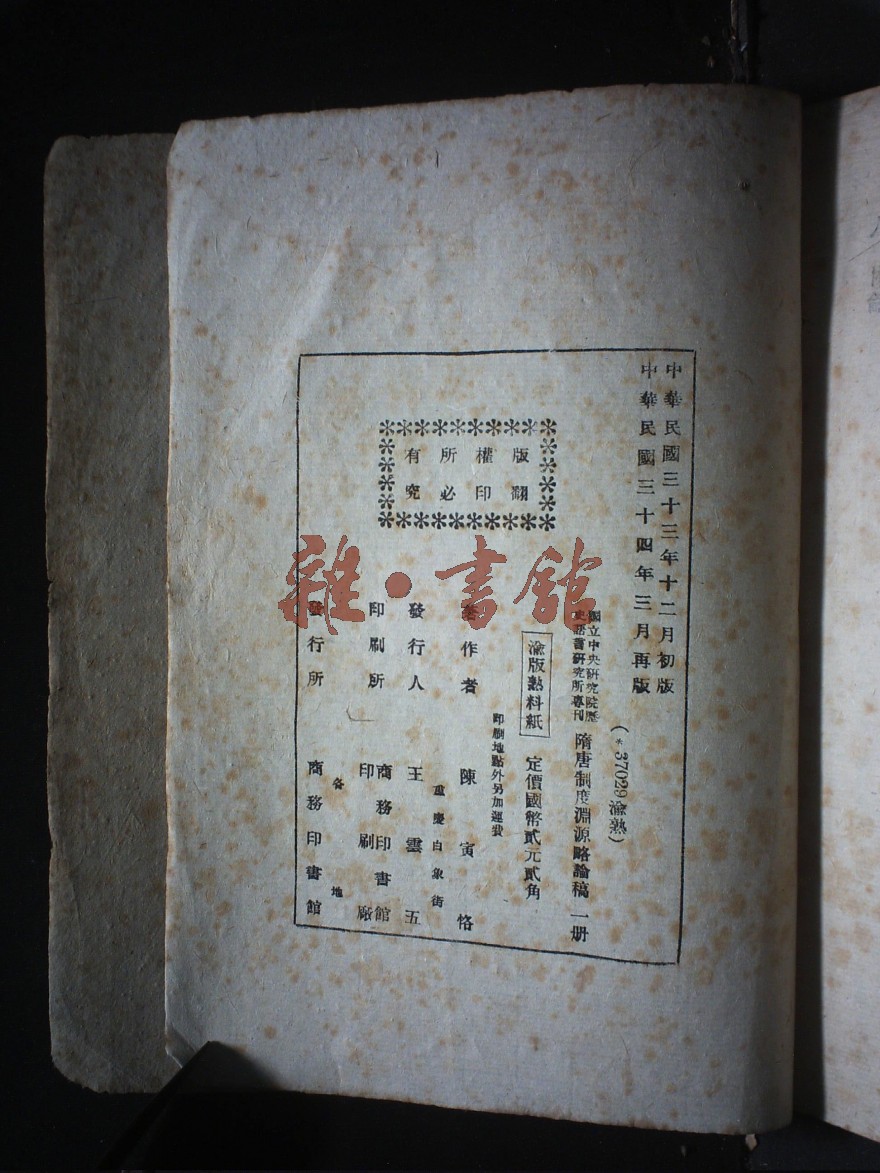 中華民國三十三年十二月初版
中華民國三十四年三月再版
(*37029渝熟)
國立中央研究院歷
史語言研究所專刊
隋唐制度淵源略論稿 一册
渝版熟料紙
定價國幣貳元貳角
印刷地點外另加運費
著作者 陳寅恪
重慶白象街
發行人 王雲五
印刷所 商務印書館
印刷廠
各地
發行所 商務印書館
版權所有
翻印必究
雜·書館